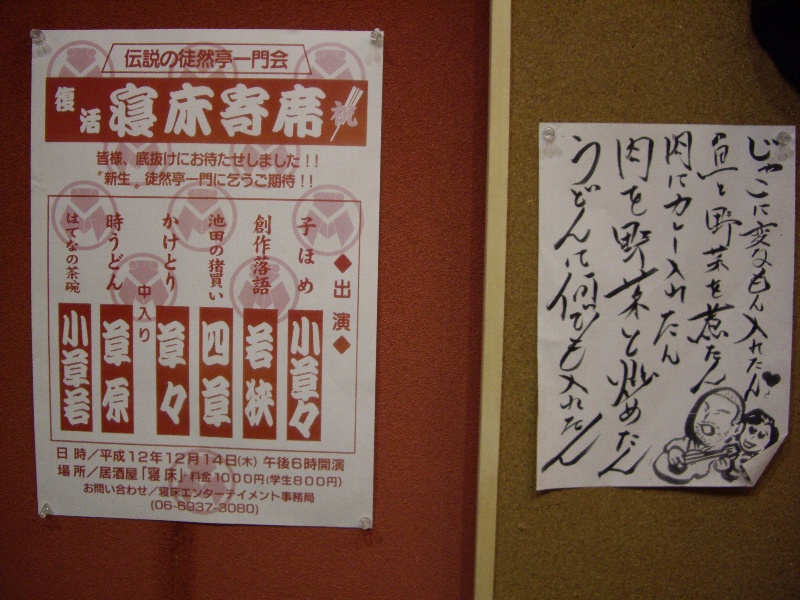 伝説の徒然亭一門会
復活 寝床寄席 祝
皆様、底抜けにお待たせしました!!
"新生"徒然亭一門に乞うご期待!!
◆出演◆
子ほめ 小草々
創作落語 若狭
池田の猪買い 四草
かけとり 草々
中入り
時うどん 草原
はてなの茶碗 小草若
日時/平成12年12月14日(木) 午後6時開演
場所/居酒屋「寝床」・料金1000円(学生800円)
お問い合わせ/寝床エンターテイメント事務局
(06-6937-3080)
じゃこに変なもん入れたん
魚と野菜を煮たん
肉にカレー入れたん
肉を野菜と炒めたん
うどんに何でも入れたん